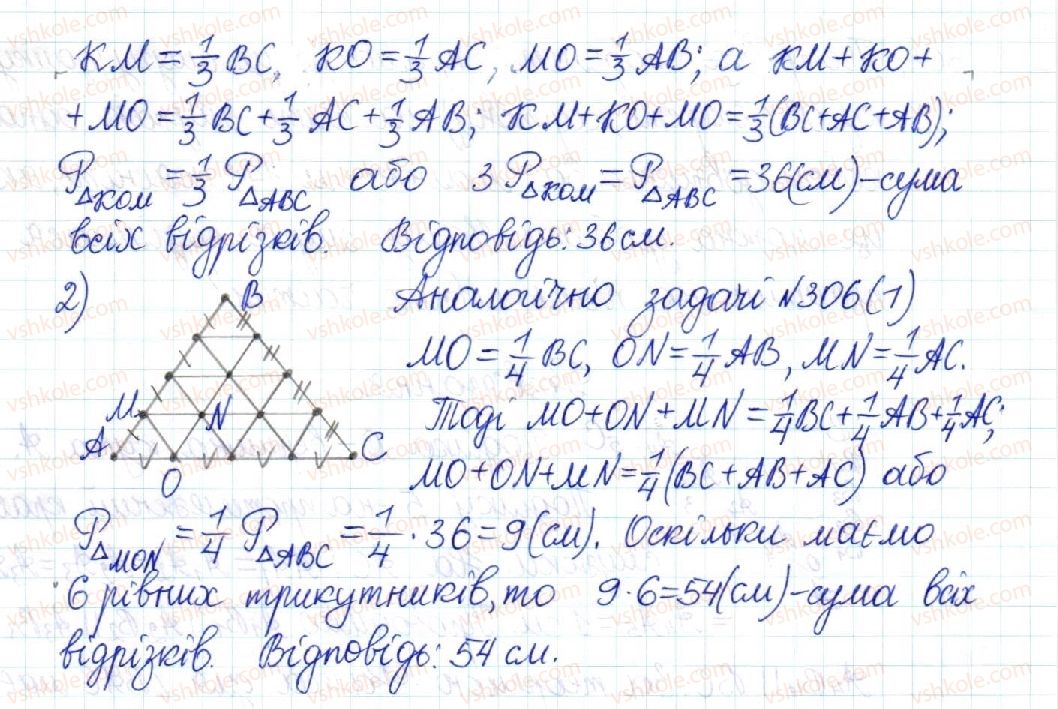 KM = 1/3 BC, KO = 1/3 AC, MO = 1/3 AB; а KM + KO +
+ MO = 1/3 BC + 1/3 AC + 1/3 AB; KM + KO + MO = 1/3 (BC + AC + AB);
P△KOM = 1/3 P△ABC або 3 P△KOM = P△ABC = 36 (см) – сума
всіх відрізків. Відповідь: 36 см.
2)
B
M
N
A
O
C
Аналогічно задачі №306(1)
MO = 1/4 BC, ON = 1/4 AB, MN = 1/4 AC.
Тоді MO + ON + MN = 1/4 BC + 1/4 AB + 1/4 AC;
MO + ON + MN = 1/4 (BC + AB + AC) або
P△MON = 1/4 P△ABC = 1/4 · 36 = 9 (см). Оскільки маємо
6 рівних трикутників, то 9 · 6 = 54 (см) – сума всіх
відрізків. Відповідь: 54 см.
vshkole.com